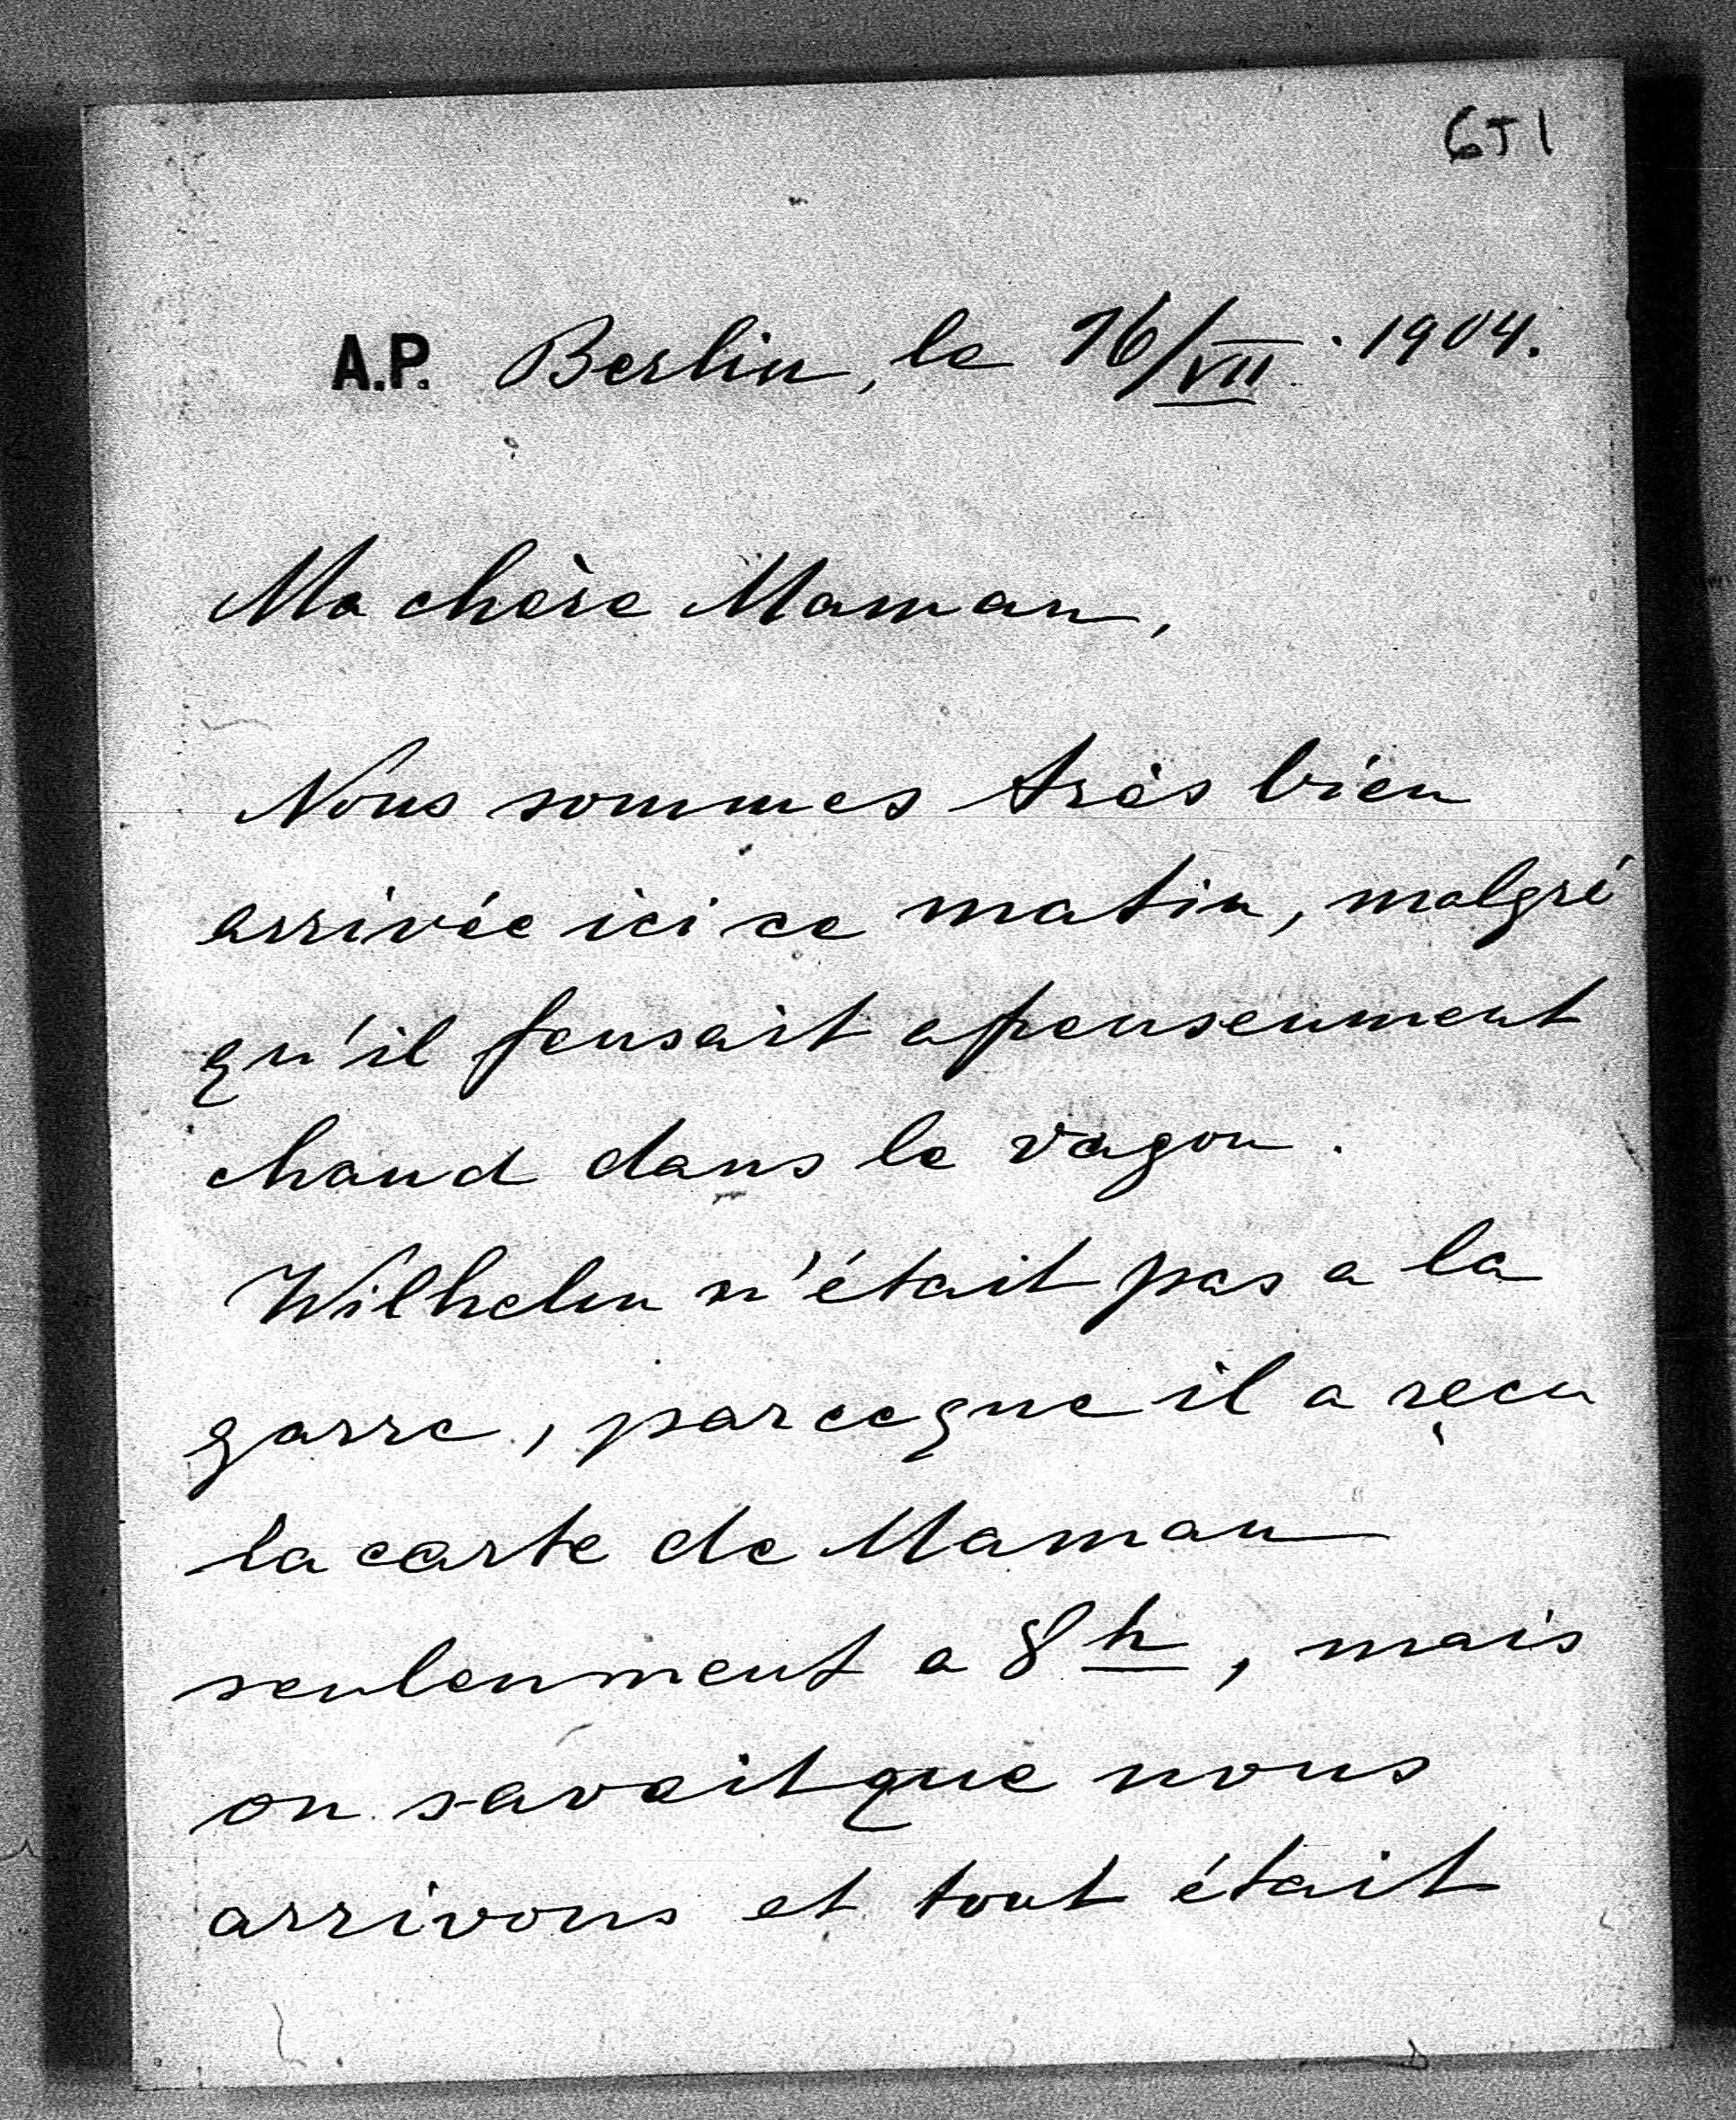 6J1
A.P. Berlin, le 16/VII. 1904.
Ma chère Maman,
Nous sommes très bien
arrivée ici ce matin, malgré
qu'il fensait afrensenment
chaud dans le vagon.
Wilhelm n'était pas a la
garre, parceque il a reçu
la carte de Maman
seulenment a 8 h, mais
on savait que nous
arrivons et tout était